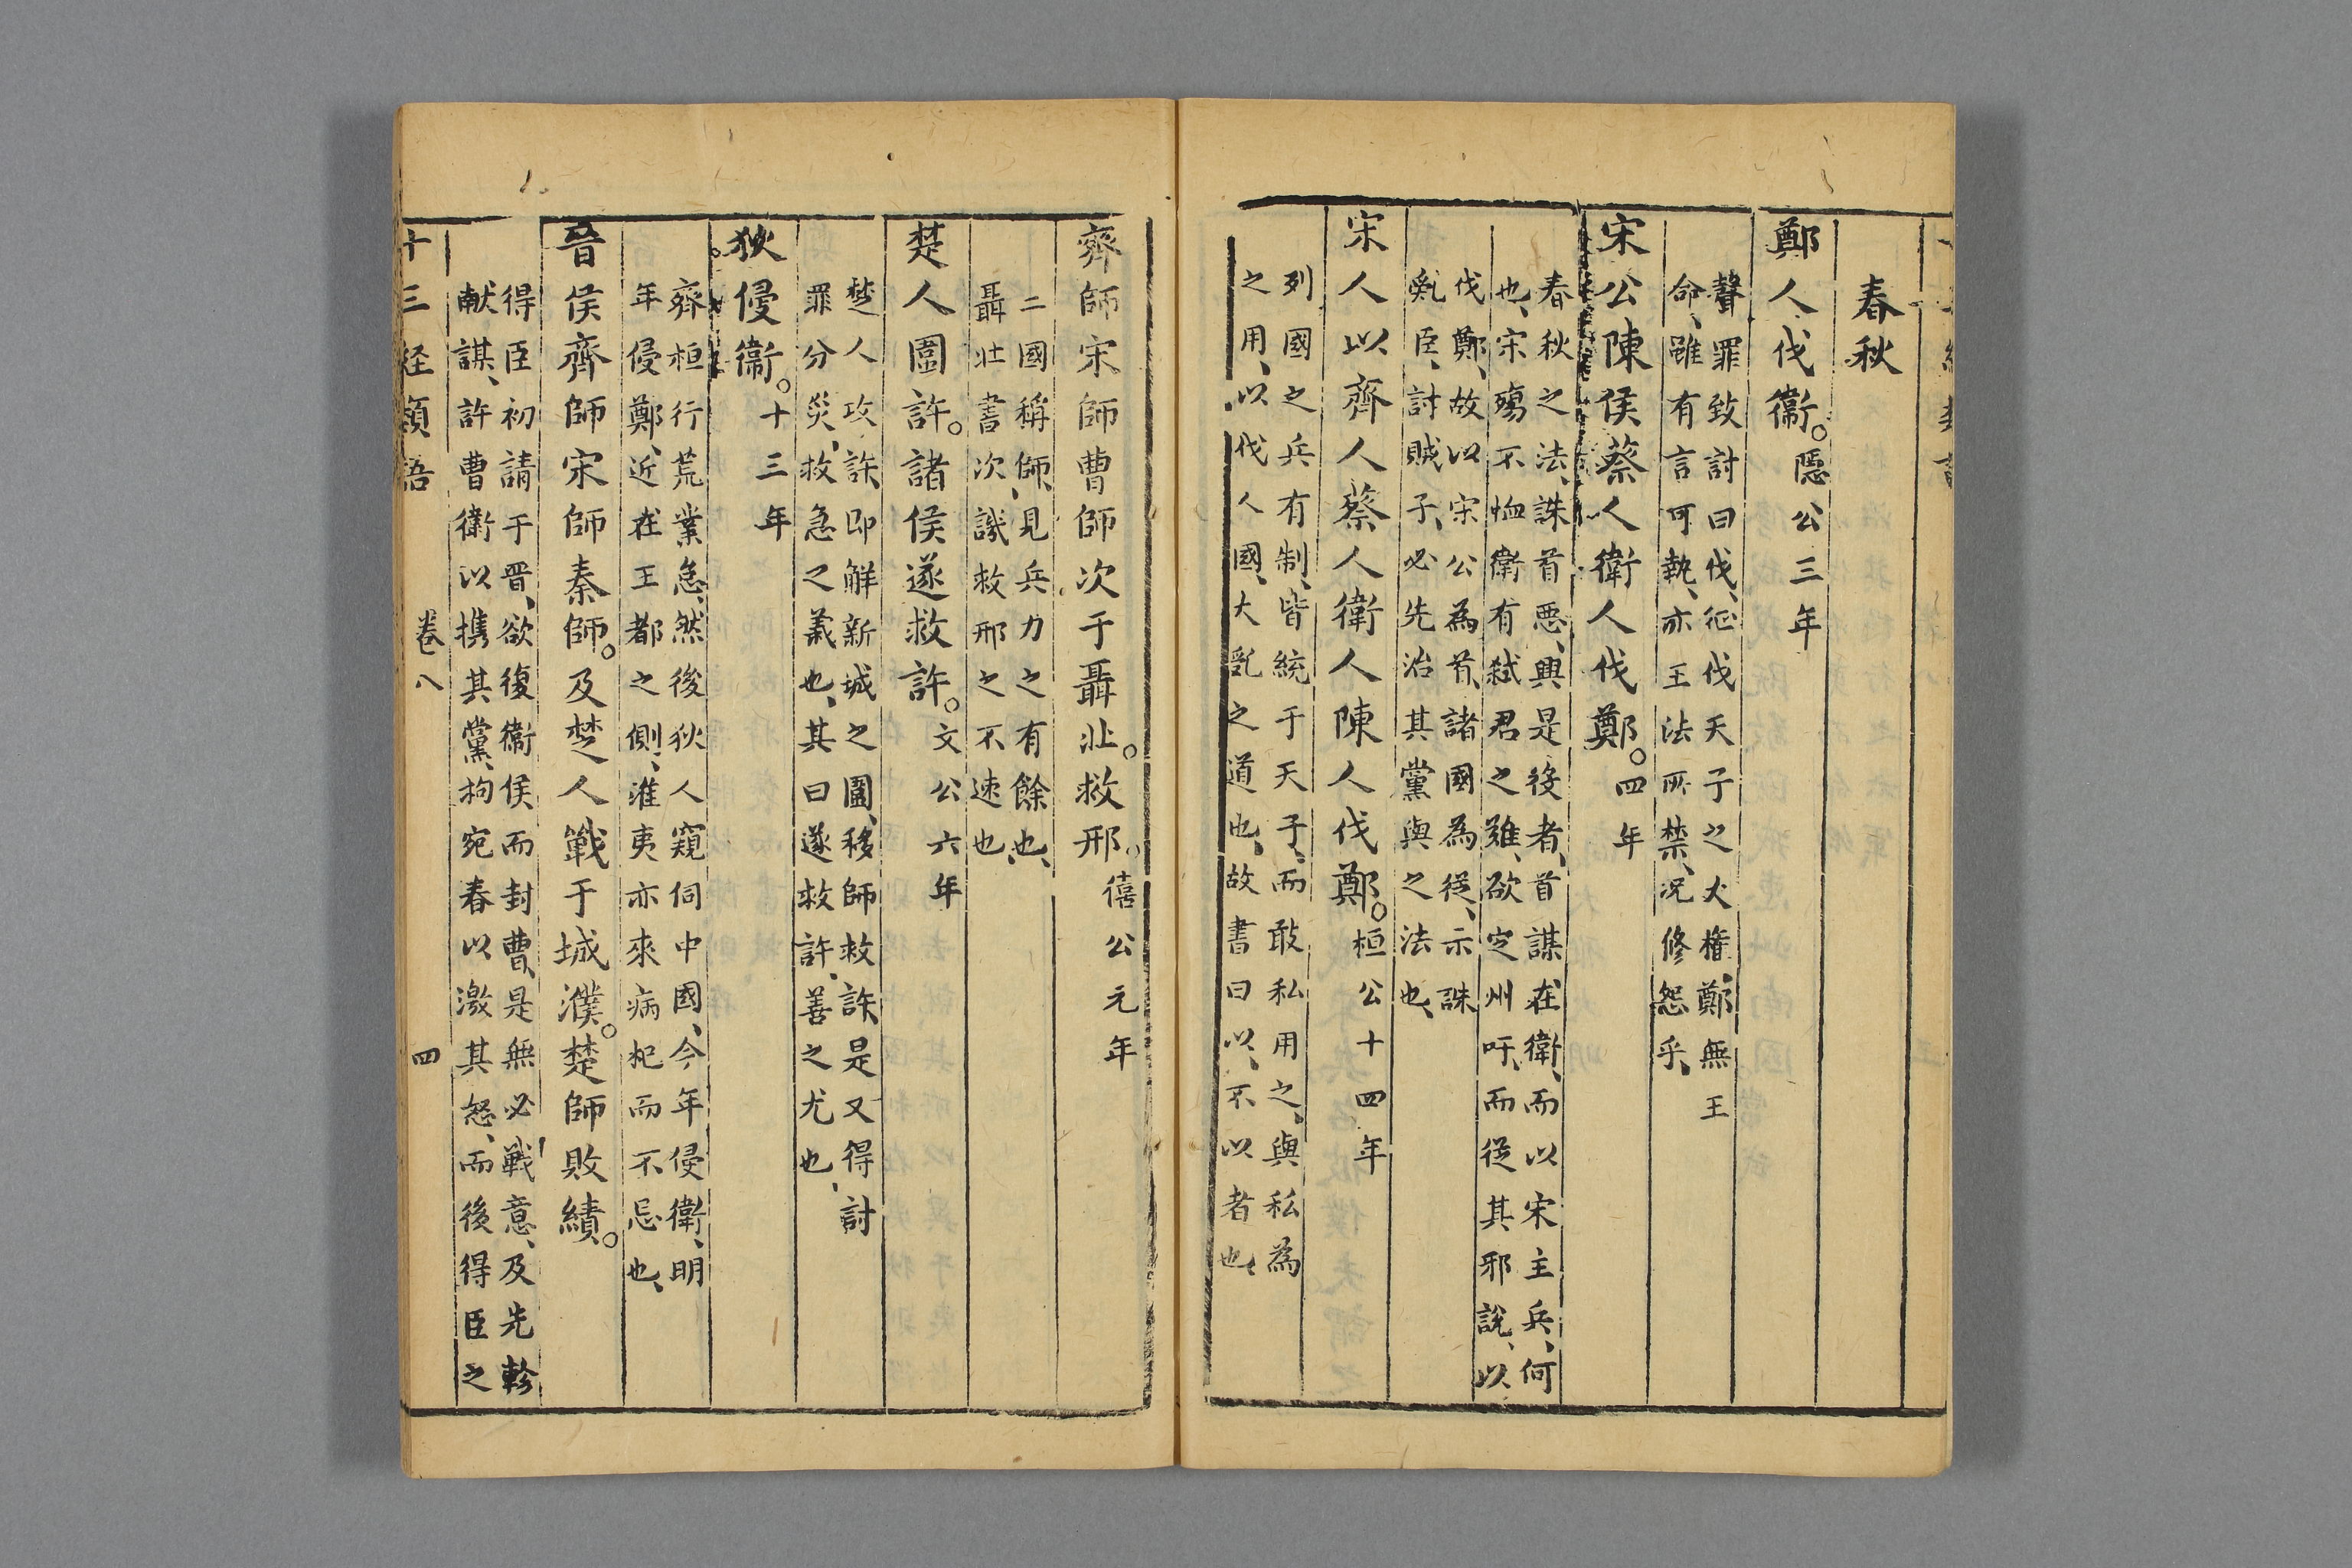 春秋
鄭人伐衞。隱公三年
聲罪致討曰伐、征伐天子之大權、鄭無王
命、雖有言可執、亦王法所禁、况修怨乎、
宋公陳侯蔡人衛人伐鄭。四年
春秋之法、誅首惡、興是役者、首謀在衛、而以宋主兵、何
也、宋殤不恤衛有弑君之難、欲定州吁、而從其邪說、以
伐鄭、故以宋公為首、諸國為從、示誅
亂臣、討賊子、必先治其黨與之法也、
宋人以齊人蔡人衛人陳人伐鄭。桓公十四年
列國之兵有制、皆統于天子、而敢私用之、與私為
之用、以伐人國、大亂之道也、故書曰以、不以者也、
齊師宋師曹師次于聶北。救邢。僖公元年
二國稱師、見兵力之有餘也、
聶北書次、譏救邢之不速也、
楚人圍許。諸侯遂救許。文公六年
楚人攻許、即解新城之圍、移師救許、是又得討
罪分災、救急之義也、其曰遂救許、善之尤也、
狄侵衞。十三年
齊桓行荒業怠、然後狄人窺伺中國、今年侵衛、明
年侵鄭、近在王都之側、淮夷亦來病杞而不忌也、
晉侯齊師宋師秦師。及楚人戰于城濮。楚師敗績。
得臣初請于晋、欲復衞侯而封曹、是無必戰意、及先軫
献謀、許曹衛以携其黨、拘宛春以激其怒、而後得臣之
十三経類語
卷八
四